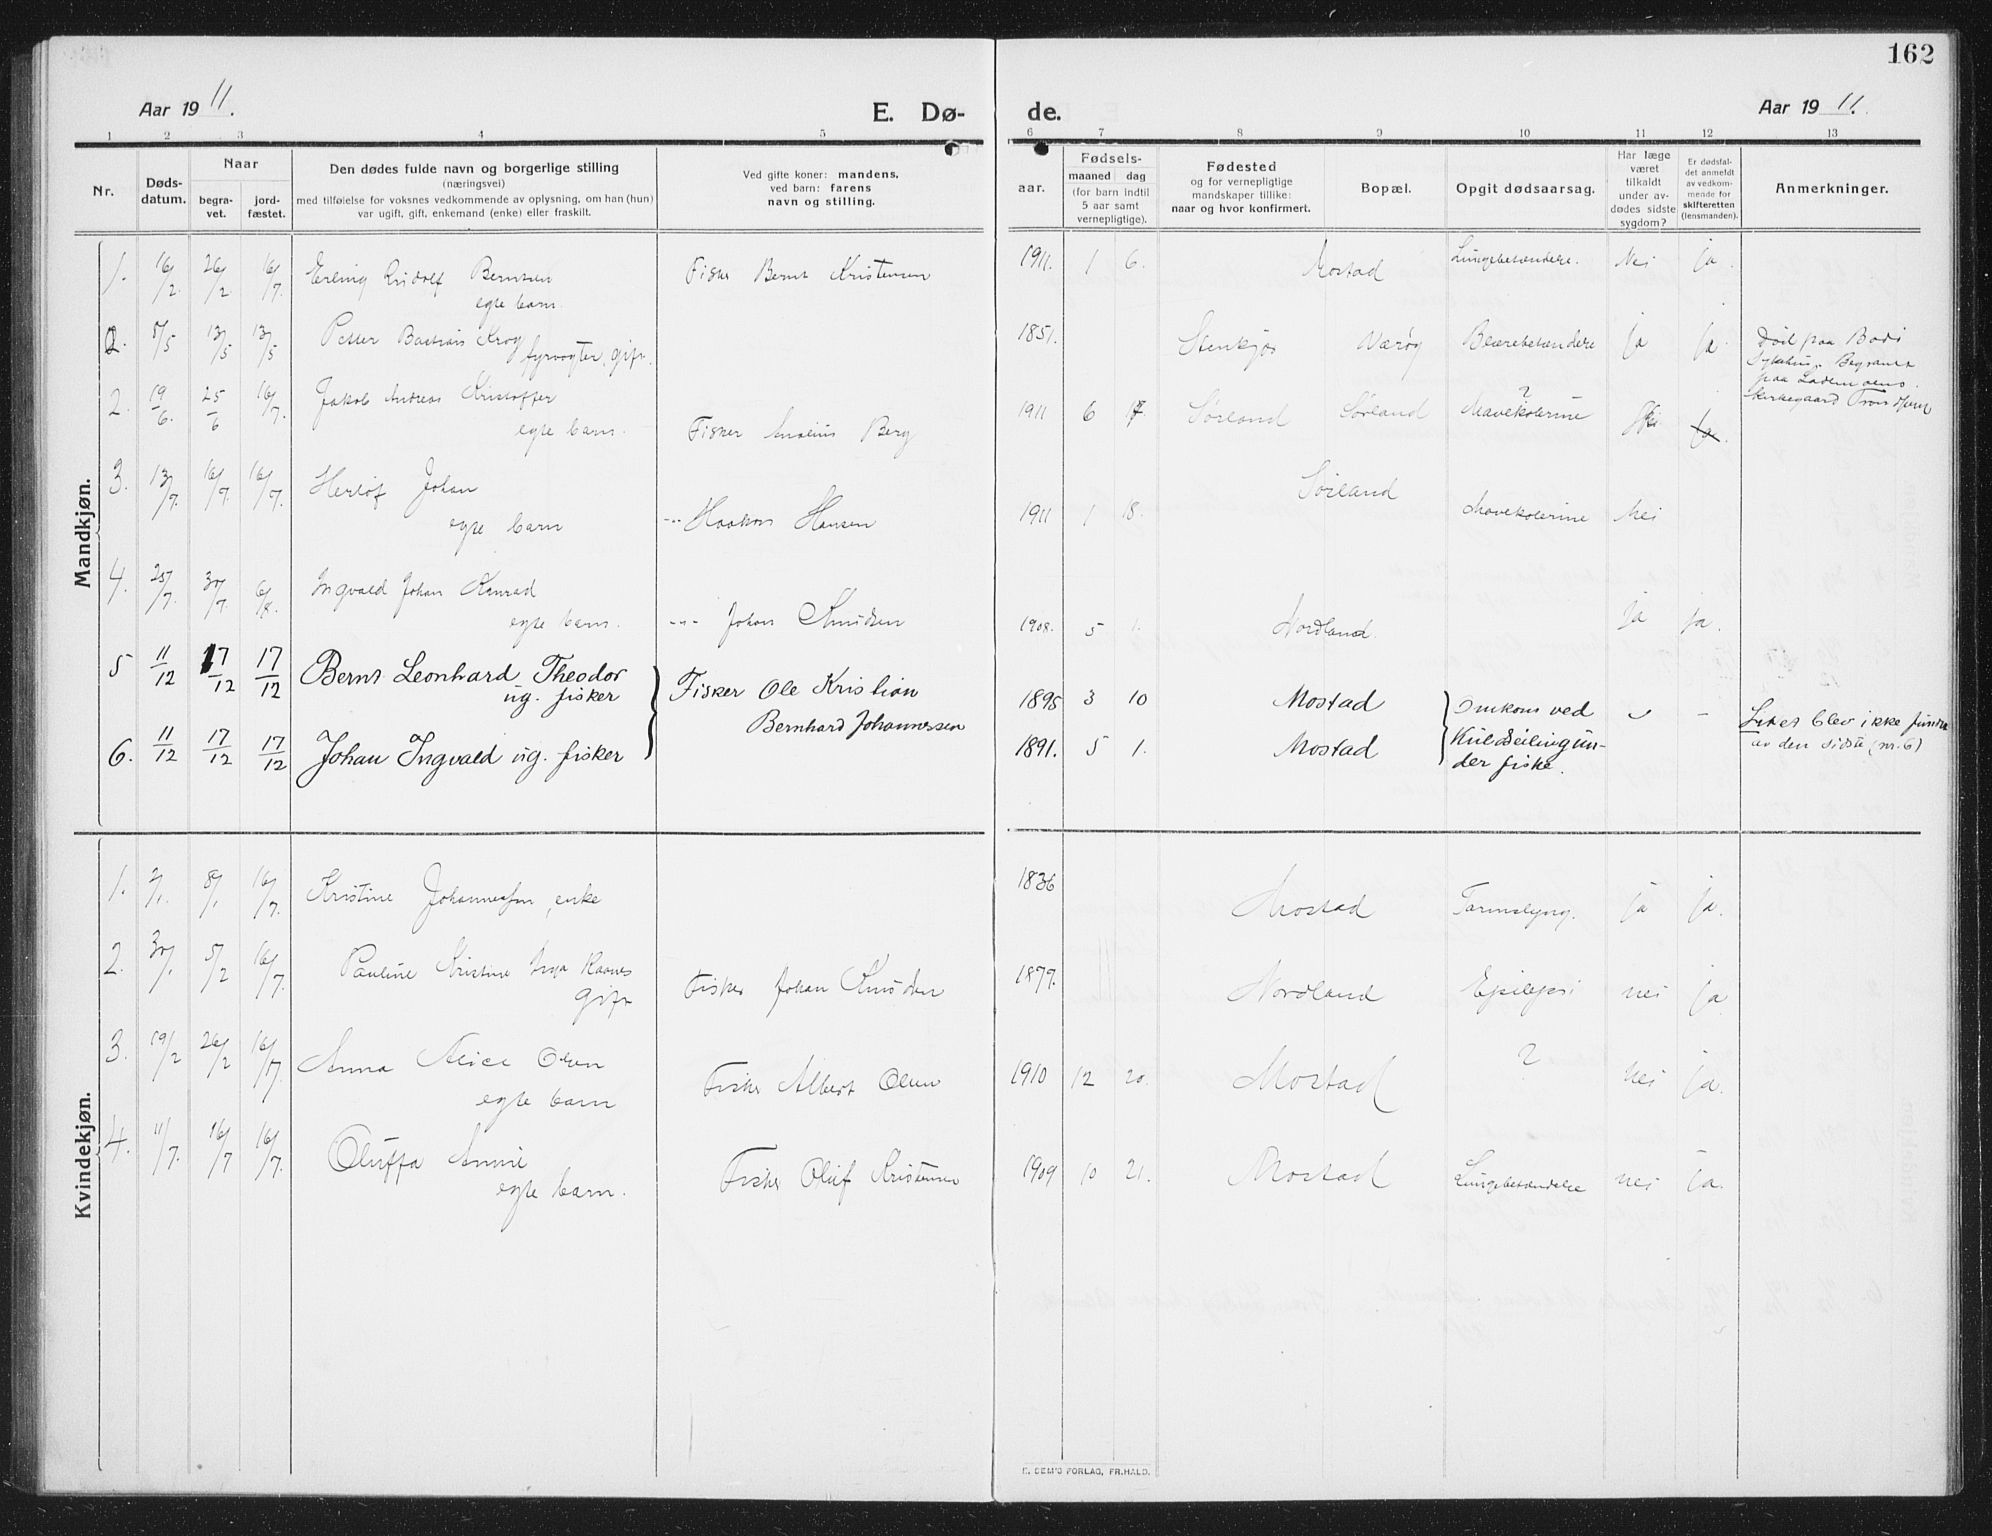 162
Aar 19 11.
E. Dø-
de.
Aar 19 11.
1 2 3 4 5 6 7 8 9 10 11 12 13
Nr.
Døds-
datum.
Naar
begra-
vet.
jord-
fæstet.
Den dødes fulde navn og borgerlige stilling
(næringsvei)
med tilføielse for voksnes vedkommende av oplysning, om han (hun)
var ugift, gift, enkemand (enke) eller fraskilt.
Ved gifte koner: mandens,
ved barn: farens
navn og stilling.
Fødsels-
aar.
maaned dag
(for barn indtil
5 aar samt
vernepligtige).
Fødested
og for vernepligtige
mandskaper tillike:
naar og hvor konfirmert.
Bopæl.
Opgit dødsaarsag.
Har læge
været
tilkaldt
under av-
dødes sidste
sygdom?
Er dødsfal-
det anmeldt
av vedkom-
mende for
skifteretten
(lensmanden).
Anmerkninger.
Mandkjøn.
1. 16/2 26/2 16/7. Erling Rudolf Berntsen Fisker Bernt Kristensen 1911. 1 6. Mostad Lungebetændelse. Nei ja.
egte barn.
2. 8/5 13/5 13/5 Petter Bastian Krog 1851. Stenkjær Værøy Blærebetændelse ja ja. Død paa Bodø
fyrvogter, gift.
Sykehus. Begravet
paa Lademoens
Kirkegaard Trondhjem
2. 19/6. 25/6 16/7. Jakob Andreas Kristoffer 1911 6 17. Sørland Sørland Mavekolerine ? ja.
egte barn. Fisker Berg
3. 13/7. 16/7. 16/7. Herlof Johan Sørland
egte barn -"- Haakon Hansen 1911 1 18. Mavekolerine Nei
4. 25/7. 30/7. 6/8. Ingvald Johan Konrad
egte barn. -"- Johan Knudsen 1908. 5 1. Nordland. ja ja.
5 11/12 17/12 17/12 Bernt Leonhard Theodor Fisker Ole Kristian 1895 3 10 Mostad Omkom ved - Liket blev ikke fundet
ug. fisker
Bernhard Johannessen
6. 11/12 17/12 17/12 Johan Ingvald ug. fisker 1891. 5 1. Mostad Kuldseiling un- av den sidste (nr. 6)
der fiske.
Kvindekjøn.
1. 2/1. 8/1 16/7. Kristine Johannessen, enke 1836 Mostad Tarmslyng. ja ja.
2. 30/1 5/2 16/7. Pauline Kristine Inga Raanes 1879. Nordland Epilepsi nei ja
gift Fisker Johan Knudsen
3. 19/2 26/2 16/7 Anna Alice Olsen 1910 12 20. Mostad ? Nei ja.
egte barn Fisker Albert Olsen
4. 11/7. 16/7 16/7. Oluffa Annie 1909 10 21. Mostad Lungebetændelse nei ja.
egte barn. Fisker Oluf Kristensen
E. SEM'S FORLAG, FR.HALD.